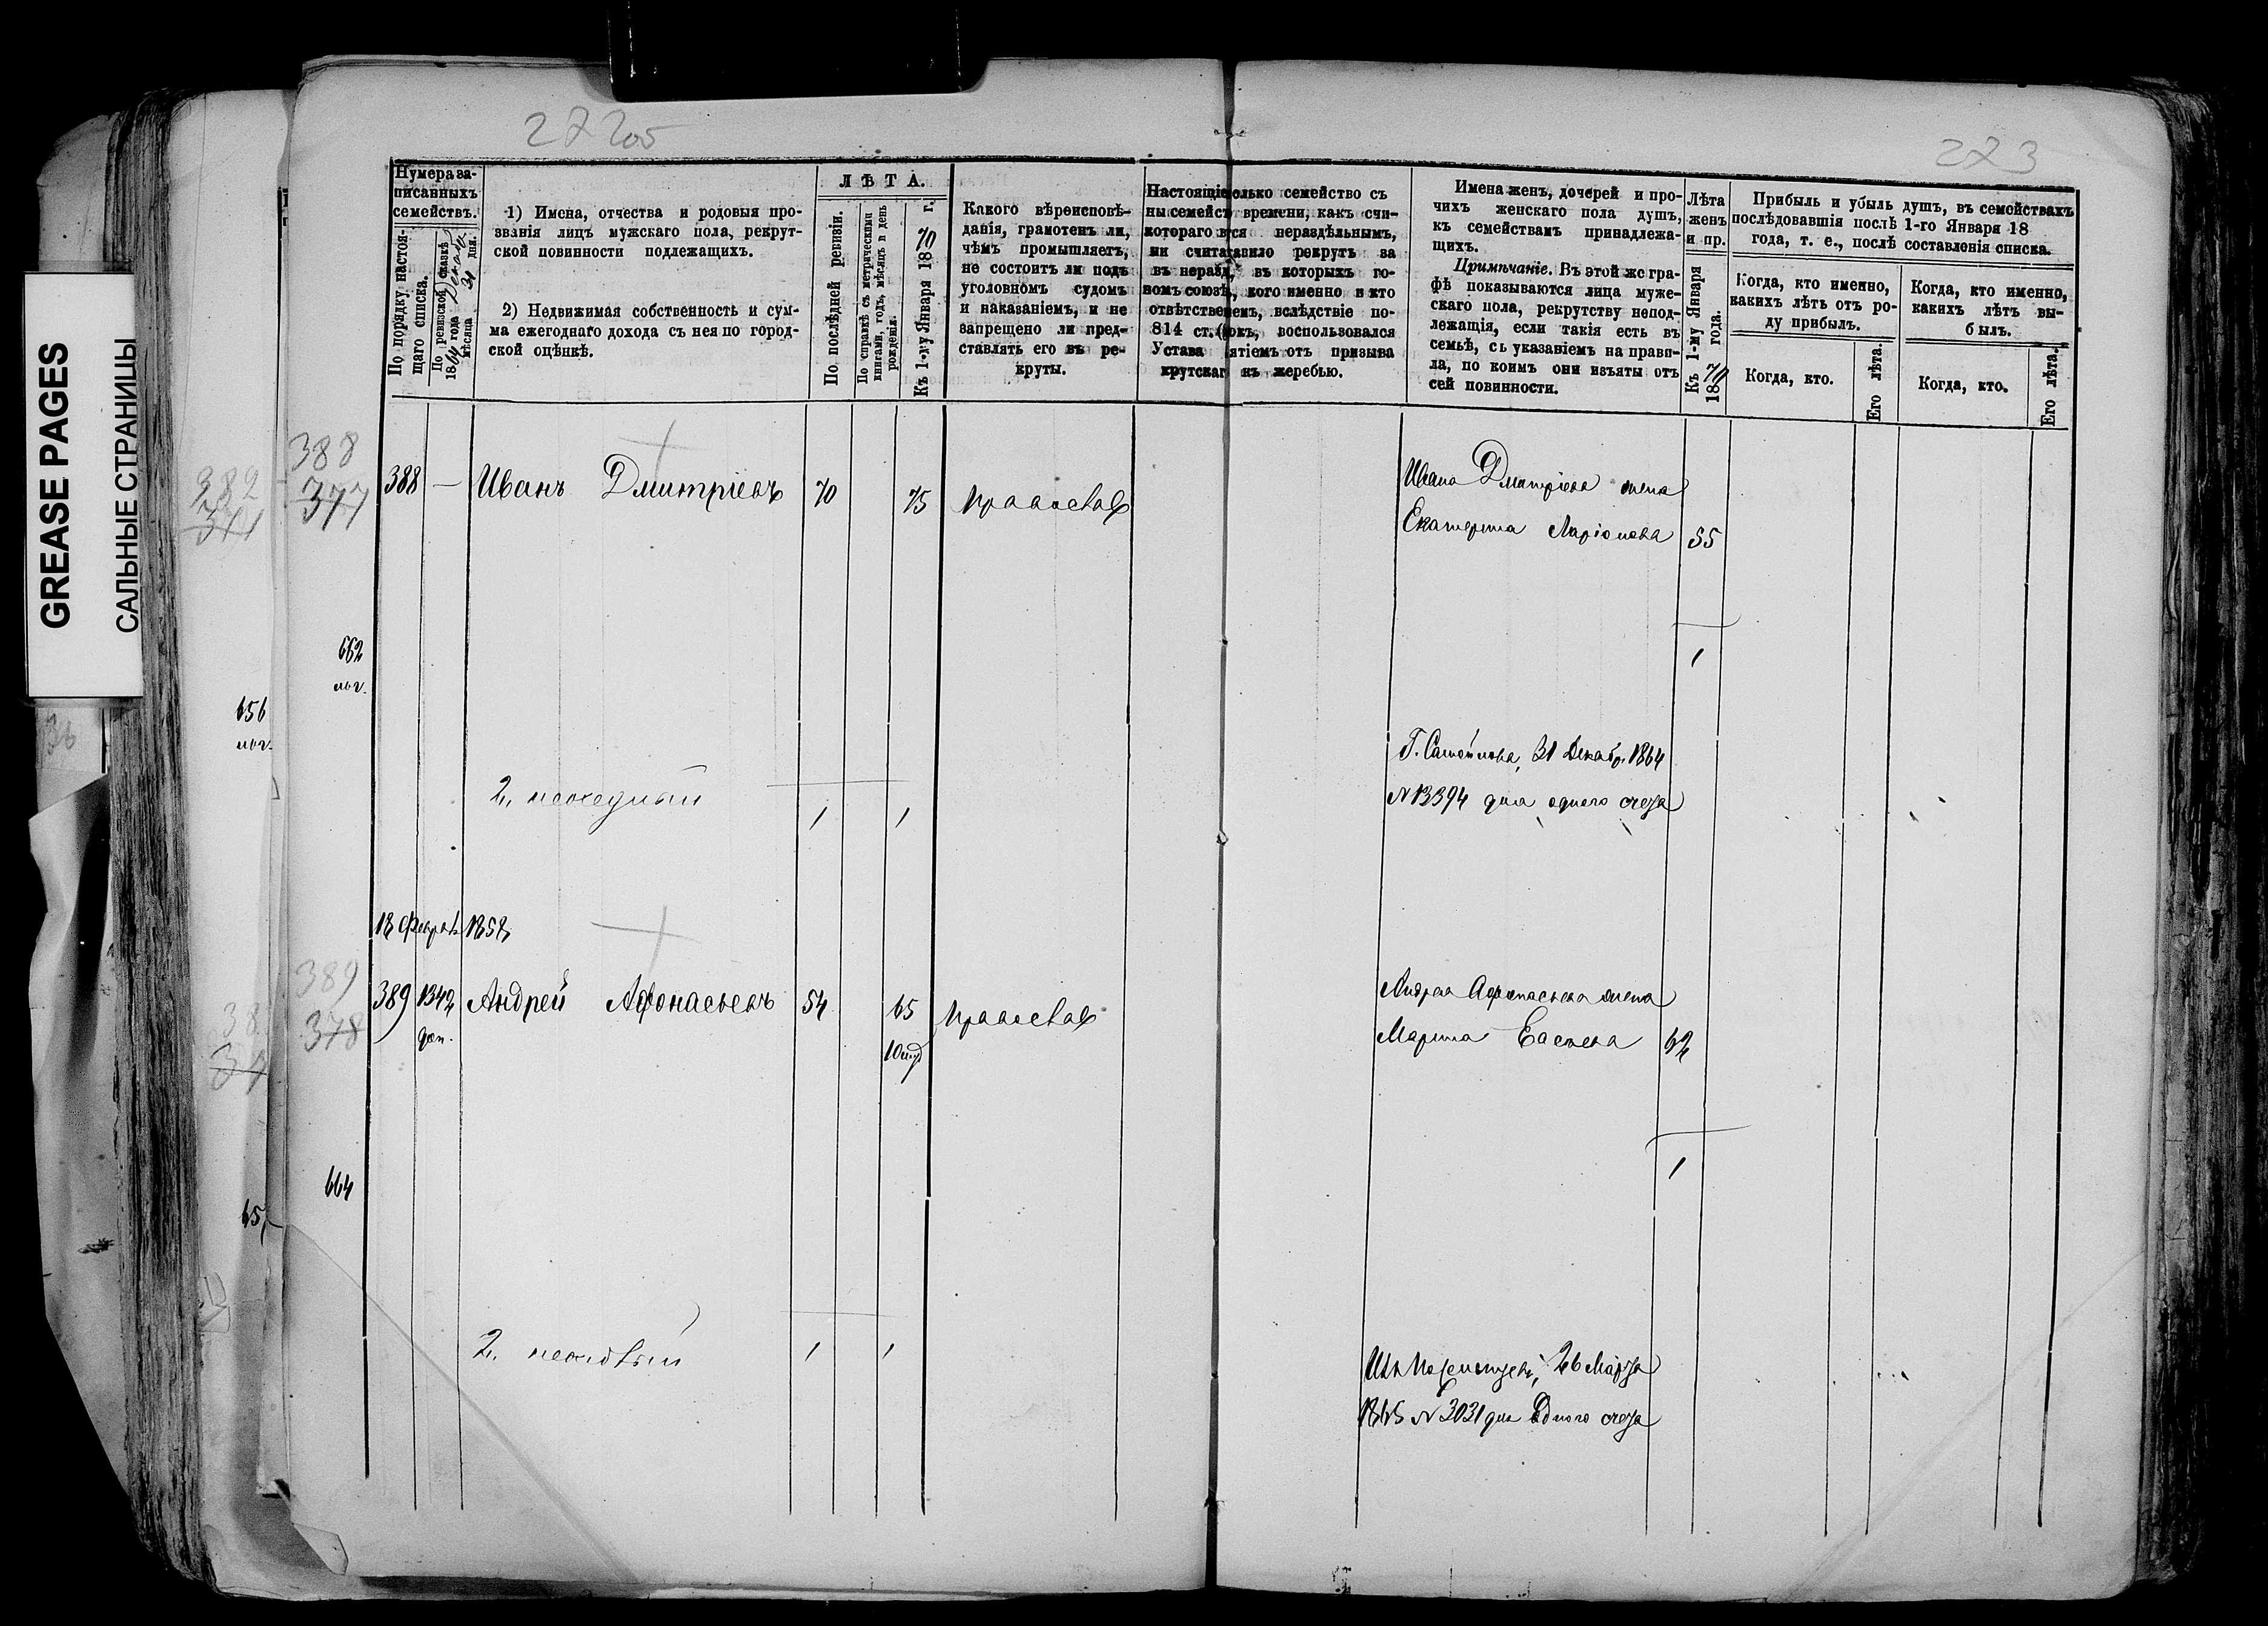 GREASE PAGES
САЛЬНЫЕ СТРАНИЦЫ
273
Нумера за-
писанныхъ
семействъ.
По порядку настоя-
щаго списка.
По ревизской сказкѣ
18 года
мѣсяца дня.
1) Имена, отчества и родовыя про-
званія лицъ мужскаго пола, рекрут-
ской повинности подлежащихъ.
2) Недвижимая собственность и сум-
ма ежегоднаго дохода съ нея по город-
ской оцѣнкѣ.
ЛѢТА.
По послѣдней ревизіи.
По справкѣ съ метрическими
книгами, годъ, мѣсяцъ и день
рожденія.
Къ 1-му Января 1870 г.
Какого вѣроисповѣ-
данія, грамотенъ ли,
чѣмъ промышляетъ,
не состоитъ ли подъ
уголовномъ судомъ
и наказаніемъ, и не
запрещено ли пред-
ставлять его въ ре-
круты.
Настоящіе олько семейство съ
ны семейст времени, какъ счи-
котораго вся нераздѣльнымъ,
ми счита авило рекрутъ за
въ нераз въ которыхъ го-
вомъ союзѣ, кого именно и кто
отвѣтстве емъ, вслѣдствіе по-
814 ст. окъ, воспользовался
Устава ятіемъ отъ призыва
крутскаг къ жеребью.
Имена женъ, дочерей и про-
чихъ женскаго пола душъ,
къ семействамъ принадлежа-
щихъ.
Примѣчаніе. Въ этой же гра-
фѣ показываются лица муже-
скаго пола, рекрутству непод-
лежащія, если такія есть въ
семьѣ, съ указаніемъ на прави-
ла, по коимъ они изъяты отъ
сей повинности.
Лѣта
женъ
и пр.
Къ 1-му Января
1870 года.
Прибыль и убыль душъ, въ семействахъ
послѣдовавшія послѣ 1-го Января 18
года, т. е., послѣ составленія списка.
Когда, кто именно,
какихъ лѣтъ отъ ро-
ду прибылъ.
Когда, кто именно,
какихъ лѣтъ вы-
былъ.
Когда, кто.
Его лѣта.
Когда, кто.
Его лѣта.
388
377
388 — Иванъ Дмитріевъ 70 75 Православ
Ивана Дмитріева жена
Екатерина Ларіонова 55
662
1
656
Г. Самойлова, 31 Декабр. 1864
N 13394 для одного счета
2,
1 1
18 Февраля 1858
389
378
389 1342 Андрей Афонасьевъ 54 65 Православ
доп.
Андрея Афонасьева жена
Марина Евсѣева 62
1
664
2,
1 1
26 Марта
1865 N 3031 для Одного счета